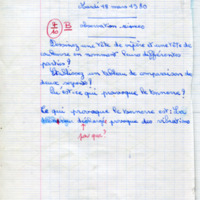 Mardi 18 mars 1980
B observation sciences
Dessinez une tête de vipère et une tête de
couleuvre en nommant leurs différentes
parties?
Etablissez un tableau de comparaison de
deux serpents?
Qu'est-ce qui provoque le tonnerre?
Ce qui provoque le tonnerre est:
provoque des vibrations
pourquoi?